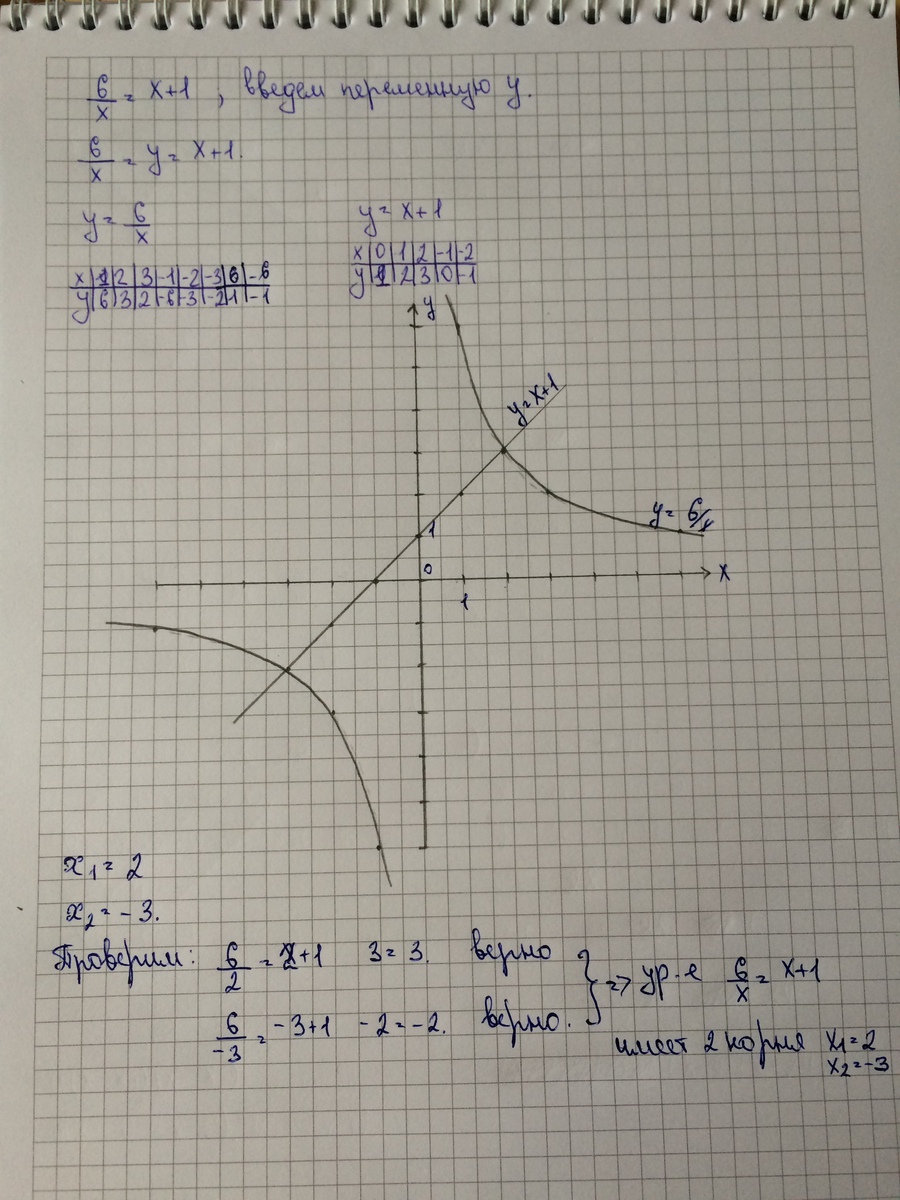 6/x = x+1 , введем переменную y.
6/x = y = x+1.
y = 6/x
y = x+1
x | 1 | 2 | 3 | -1 | -2 | -3 | 6 | -6
y | 6 | 3 | 2 | -6 | -3 | -2 | 1 | -1
x | 0 | 1 | 2 | -1 | -2
y | 1 | 2 | 3 | 0 | -1
y
y=x+1
y = 6/x
1
0
x
1
x₁ = 2
x₂ = -3.
Проверим: 6/2 = 2+1 3 = 3. верно
6/-3 = -3+1 -2 = -2. верно.
} => ур-е 6/x = x+1
имеет 2 корня x₁=2
x₂=-3